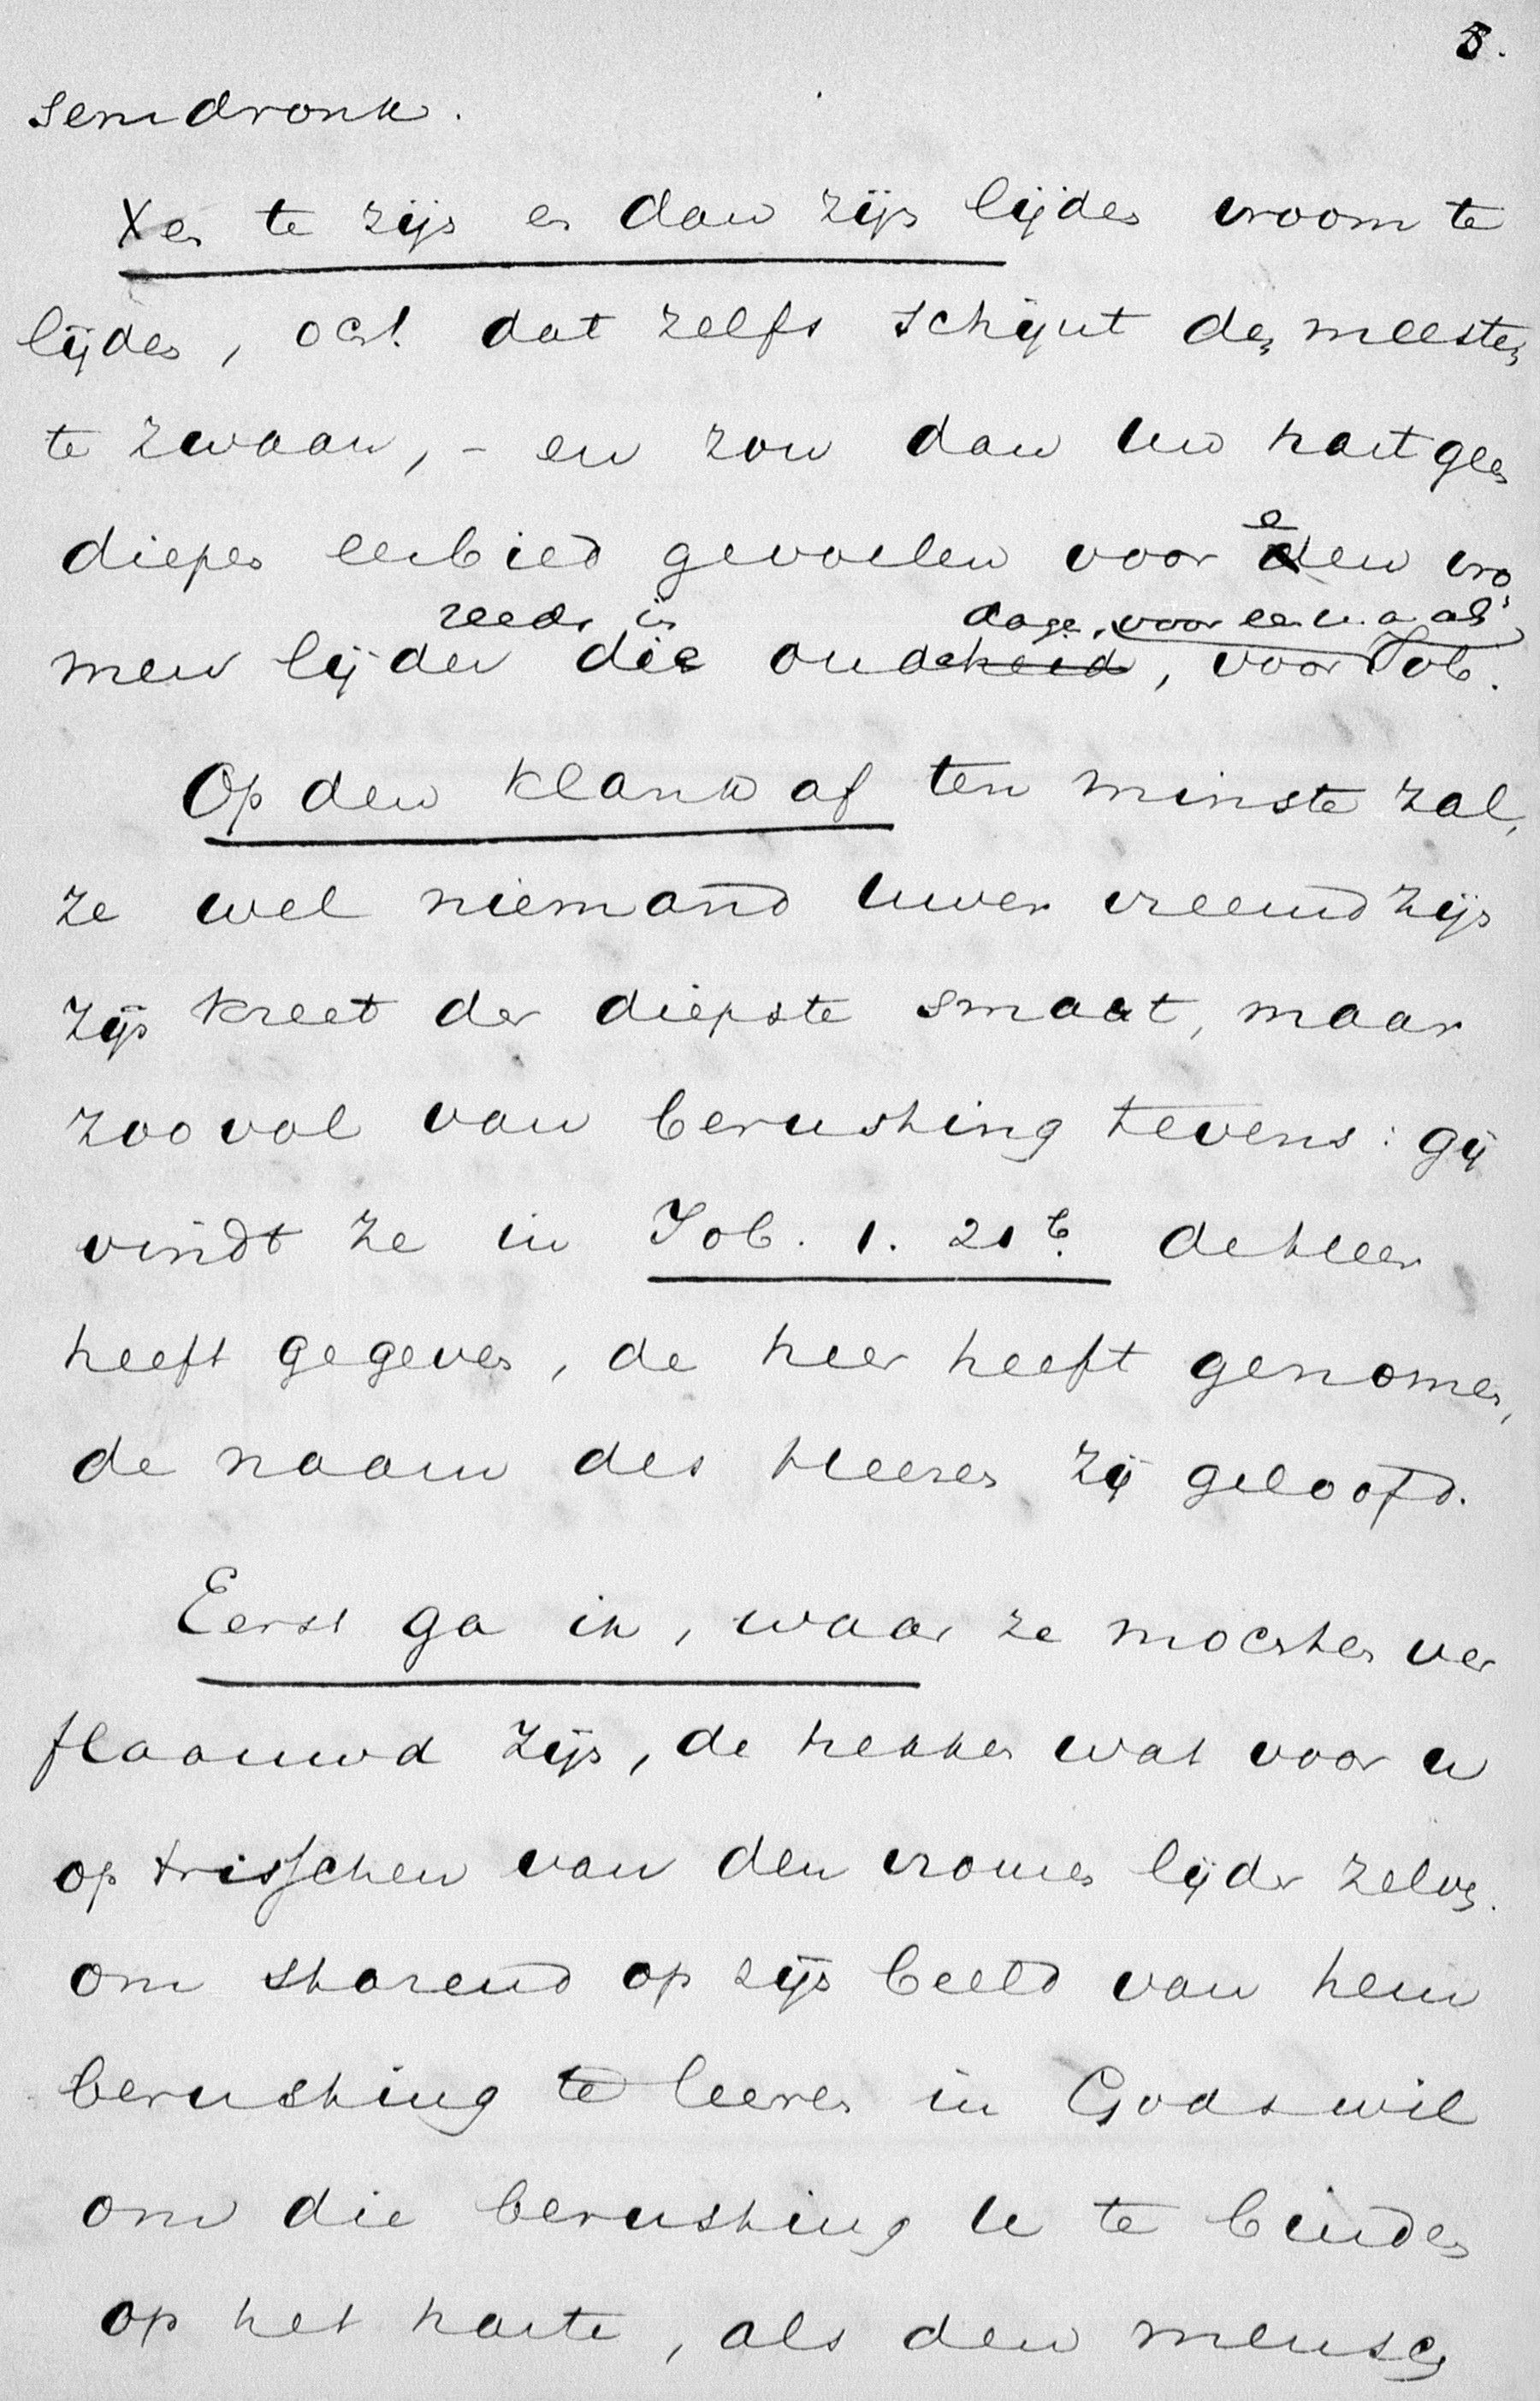 8.
semdronk.
X en te zijn en dan zijn lijden vroom te
lijden, och! dat zelfs schijnt den meesten
te zwaar, - en zou dan uw hart geen
diepen eerbied gevoelen voor een vro
reeds in dage, voor een u. a. als
men lijder die oudheid, voor Job.
Op den klank af ten minste zal,
ze wel niemand uwer vreemd zijn
zijn kreet der diepste smart, maar
zoo vol van berusting tevens: gij
vindt ze in Job. 1. 21b. de Heer
heeft gegeven, de heer heeft genomen,
de naam des Heeren zij geloofd.
Eerst ga ik, waar ze mochten ver
flaauwd zijn, de trekken wat voor u
op frisschen van den vromen lijder zelven.
om starend op zijn beeld van hem
berusting te leeren in Gods wil
om die berusting u te binden
op het harte, als den mensch